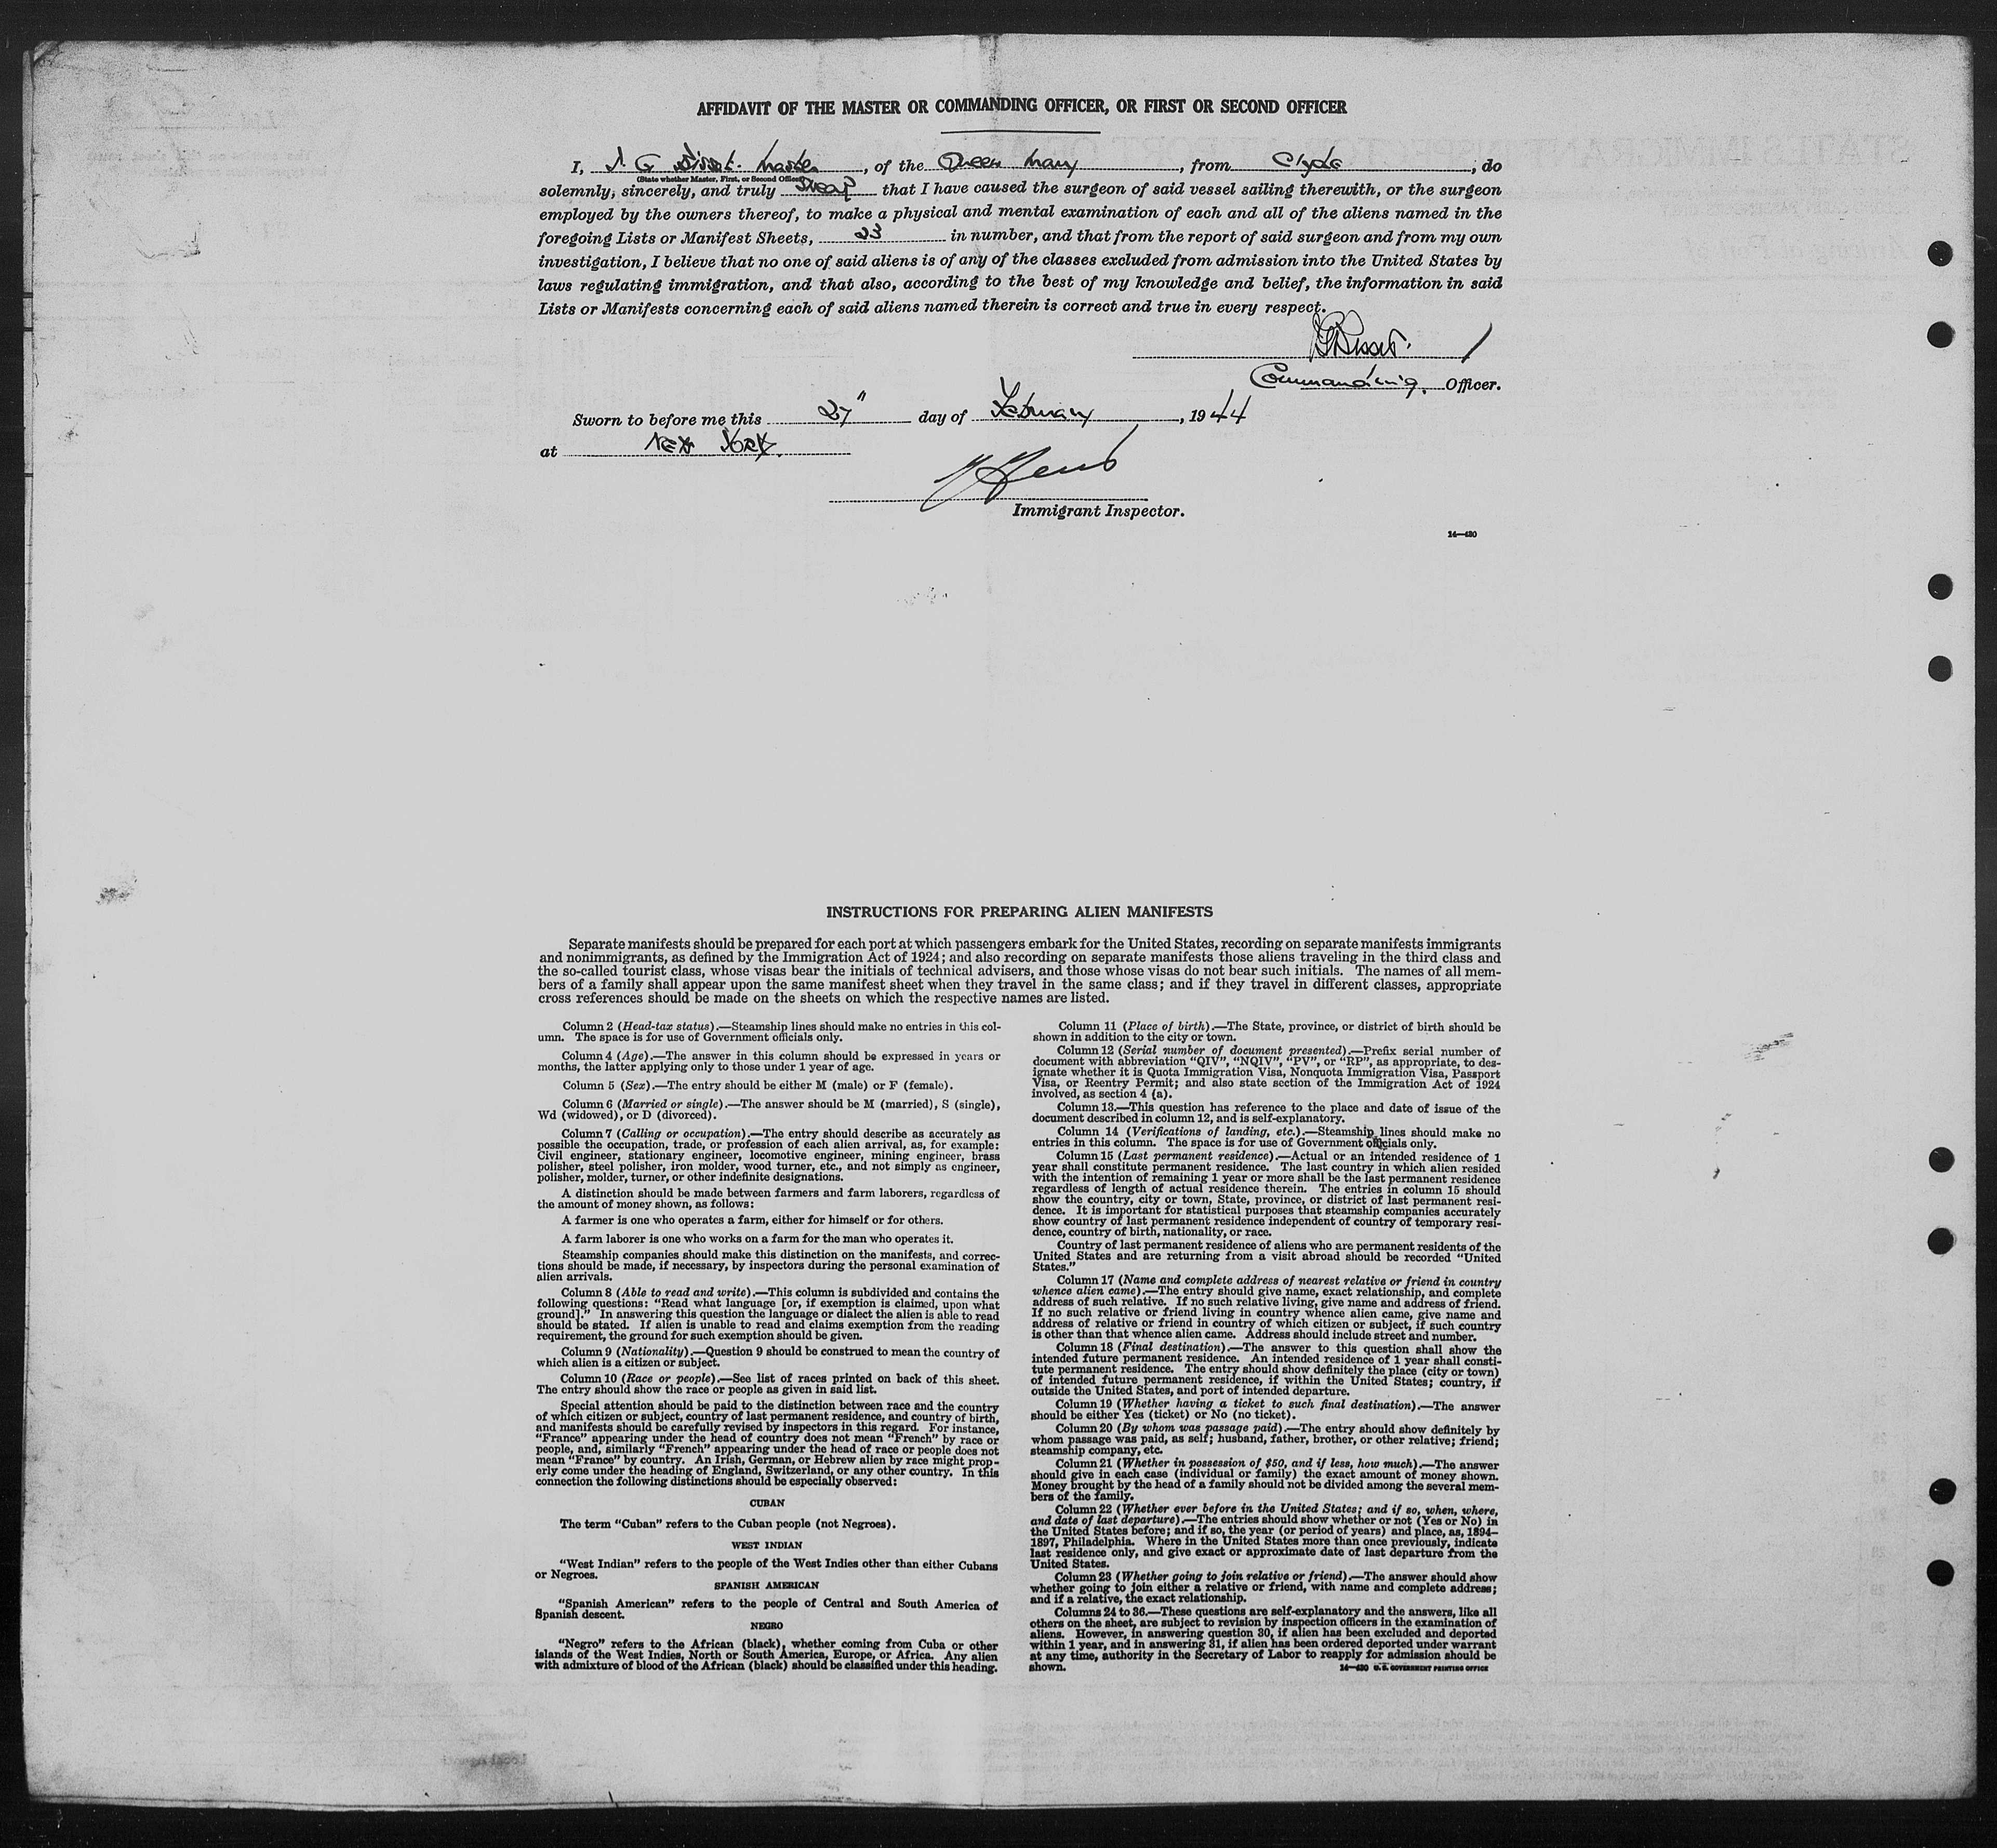 AFFIDAVIT OF THE MASTER OR COMMANDING OFFICER, OR FIRST OR SECOND OFFICER
I, J. G. Bisset. Master, of the Queen Mary, from Clyde, do
(State whether Master, First, or Second Officer)
solemnly, sincerely, and truly swear that I have caused the surgeon of said vessel sailing therewith, or the surgeon
employed by the owners thereof, to make a physical and mental examination of each and all of the aliens named in the
foregoing Lists or Manifest Sheets, 23 in number, and that from the report of said surgeon and from my own
investigation, I believe that no one of said aliens is of any of the classes excluded from admission into the United States by
laws regulating immigration, and that also, according to the best of my knowledge and belief, the information in said
Lists or Manifests concerning each of said aliens named therein is correct and true in every respect.
JGBisset.
Commanding Officer.
Sworn to before me this 27" day of February, 1944
at NEW YORK.
Immigrant Inspector.
14—430
INSTRUCTIONS FOR PREPARING ALIEN MANIFESTS
Separate manifests should be prepared for each port at which passengers embark for the United States, recording on separate manifests immigrants
and nonimmigrants, as defined by the Immigration Act of 1924; and also recording on separate manifests those aliens traveling in the third class and
the so-called tourist class, whose visas bear the initials of technical advisers, and those whose visas do not bear such initials. The names of all mem-
bers of a family shall appear upon the same manifest sheet when they travel in the same class; and if they travel in different classes, appropriate
cross references should be made on the sheets on which the respective names are listed.
Column 2 (Head-tax status).—Steamship lines should make no entries in this col-
umn. The space is for use of Government officials only.
Column 4 (Age).—The answer in this column should be expressed in years or
months, the latter applying only to those under 1 year of age.
Column 5 (Sex).—The entry should be either M (male) or F (female).
Column 6 (Married or single).—The answer should be M (married), S (single),
Wd (widowed), or D (divorced).
Column 7 (Calling or occupation).—The entry should describe as accurately as
possible the occupation, trade, or profession of each alien arrival, as, for example:
Civil engineer, stationary engineer, locomotive engineer, mining engineer, brass
polisher, steel polisher, iron molder, wood turner, etc., and not simply as engineer,
polisher, molder, turner, or other indefinite designations.
A distinction should be made between farmers and farm laborers, regardless of
the amount of money shown, as follows:
A farmer is one who operates a farm, either for himself or for others.
A farm laborer is one who works on a farm for the man who operates it.
Steamship companies should make this distinction on the manifests, and correc-
tions should be made, if necessary, by inspectors during the personal examination of
alien arrivals.
Column 8 (Able to read and write).—This column is subdivided and contains the
following questions: "Read what language [or, if exemption is claimed, upon what
ground]." In answering this question the language or dialect the alien is able to read
should be stated. If alien is unable to read and claims exemption from the reading
requirement, the ground for such exemption should be given.
Column 9 (Nationality).—Question 9 should be construed to mean the country of
which alien is a citizen or subject.
Column 10 (Race or people).—See list of races printed on back of this sheet.
The entry should show the race or people as given in said list.
Special attention should be paid to the distinction between race and the country
of which citizen or subject, country of last permanent residence, and country of birth,
and manifests should be carefully revised by inspectors in this regard. For instance,
"France" appearing under the head of country does not mean "French" by race or
people, and, similarly "French" appearing under the head of race or people does not
mean "France" by country. An Irish, German, or Hebrew alien by race might prop-
erly come under the heading of England, Switzerland, or any other country. In this
connection the following distinctions should be especially observed:
CUBAN
The term "Cuban" refers to the Cuban people (not Negroes).
WEST INDIAN
"West Indian" refers to the people of the West Indies other than either Cubans
or Negroes.
SPANISH AMERICAN
"Spanish American" refers to the people of Central and South America of
Spanish descent.
NEGRO
"Negro" refers to the African (black), whether coming from Cuba or other
islands of the West Indies, North or South America, Europe, or Africa. Any alien
with admixture of blood of the African (black) should be classified under this heading.
Column 11 (Place of birth).—The State, province, or district of birth should be
shown in addition to the city or town.
Column 12 (Serial number of document presented).—Prefix serial number of
document with abbreviation "QIV", "NQIV", "PV", or "RP", as appropriate, to des-
ignate whether it is Quota Immigration Visa, Nonquota Immigration Visa, Passport
Visa, or Reentry Permit; and also state section of the Immigration Act of 1924
involved, as section 4 (a).
Column 13.—This question has reference to the place and date of issue of the
document described in column 12, and is self-explanatory.
Column 14 (Verifications of landing, etc.).—Steamship lines should make no
entries in this column. The space is for use of Government officials only.
Column 15 (Last permanent residence).—Actual or an intended residence of 1
year shall constitute permanent residence. The last country in which alien resided
with the intention of remaining 1 year or more shall be the last permanent residence
regardless of length of actual residence therein. The entries in column 15 should
show the country, city or town, State, province, or district of last permanent resi-
dence. It is important for statistical purposes that steamship companies accurately
show country of last permanent residence independent of country of temporary resi-
dence, country of birth, nationality, or race.
Country of last permanent residence of aliens who are permanent residents of the
United States and are returning from a visit abroad should be recorded "United
States."
Column 17 (Name and complete address of nearest relative or friend in country
whence alien came).—The entry should give name, exact relationship, and complete
address of such relative. If no such relative living, give name and address of friend.
If no such relative or friend living in country whence alien came, give name and
address of relative or friend in country of which citizen or subject, if such country
is other than that whence alien came. Address should include street and number.
Column 18 (Final destination).—The answer to this question shall show the
intended future permanent residence. An intended residence of 1 year shall consti-
tute permanent residence. The entry should show definitely the place (city or town)
of intended future permanent residence, if within the United States; country, if
outside the United States, and port of intended departure.
Column 19 (Whether having a ticket to such final destination).—The answer
should be either Yes (ticket) or No (no ticket).
Column 20 (By whom was passage paid).—The entry should show definitely by
whom passage was paid, as self; husband, father, brother, or other relative; friend;
steamship company, etc.
Column 21 (Whether in possession of $50, and if less, how much).—The answer
should give in each case (individual or family) the exact amount of money shown.
Money brought by the head of a family should not be divided among the several mem-
bers of the family.
Column 22 (Whether ever before in the United States; and if so, when, where,
and date of last departure).—The entries should show whether or not (Yes or No) in
the United States before; and if so, the year (or period of years) and place, as, 1894–
1897, Philadelphia. Where in the United States more than once previously, indicate
last residence only, and give exact or approximate date of last departure from the
United States.
Column 23 (Whether going to join relative or friend).—The answer should show
whether going to join either a relative or friend, with name and complete address;
and if a relative, the exact relationship.
Columns 24 to 36.—These questions are self-explanatory and the answers, like all
others on the sheet, are subject to revision by inspection officers in the examination of
aliens. However, in answering question 30, if alien has been excluded and deported
within 1 year, and in answering 31, if alien has been ordered deported under warrant
at any time, authority in the Secretary of Labor to reapply for admission should be
shown.
14—430 U. S. GOVERNMENT PRINTING OFFICE